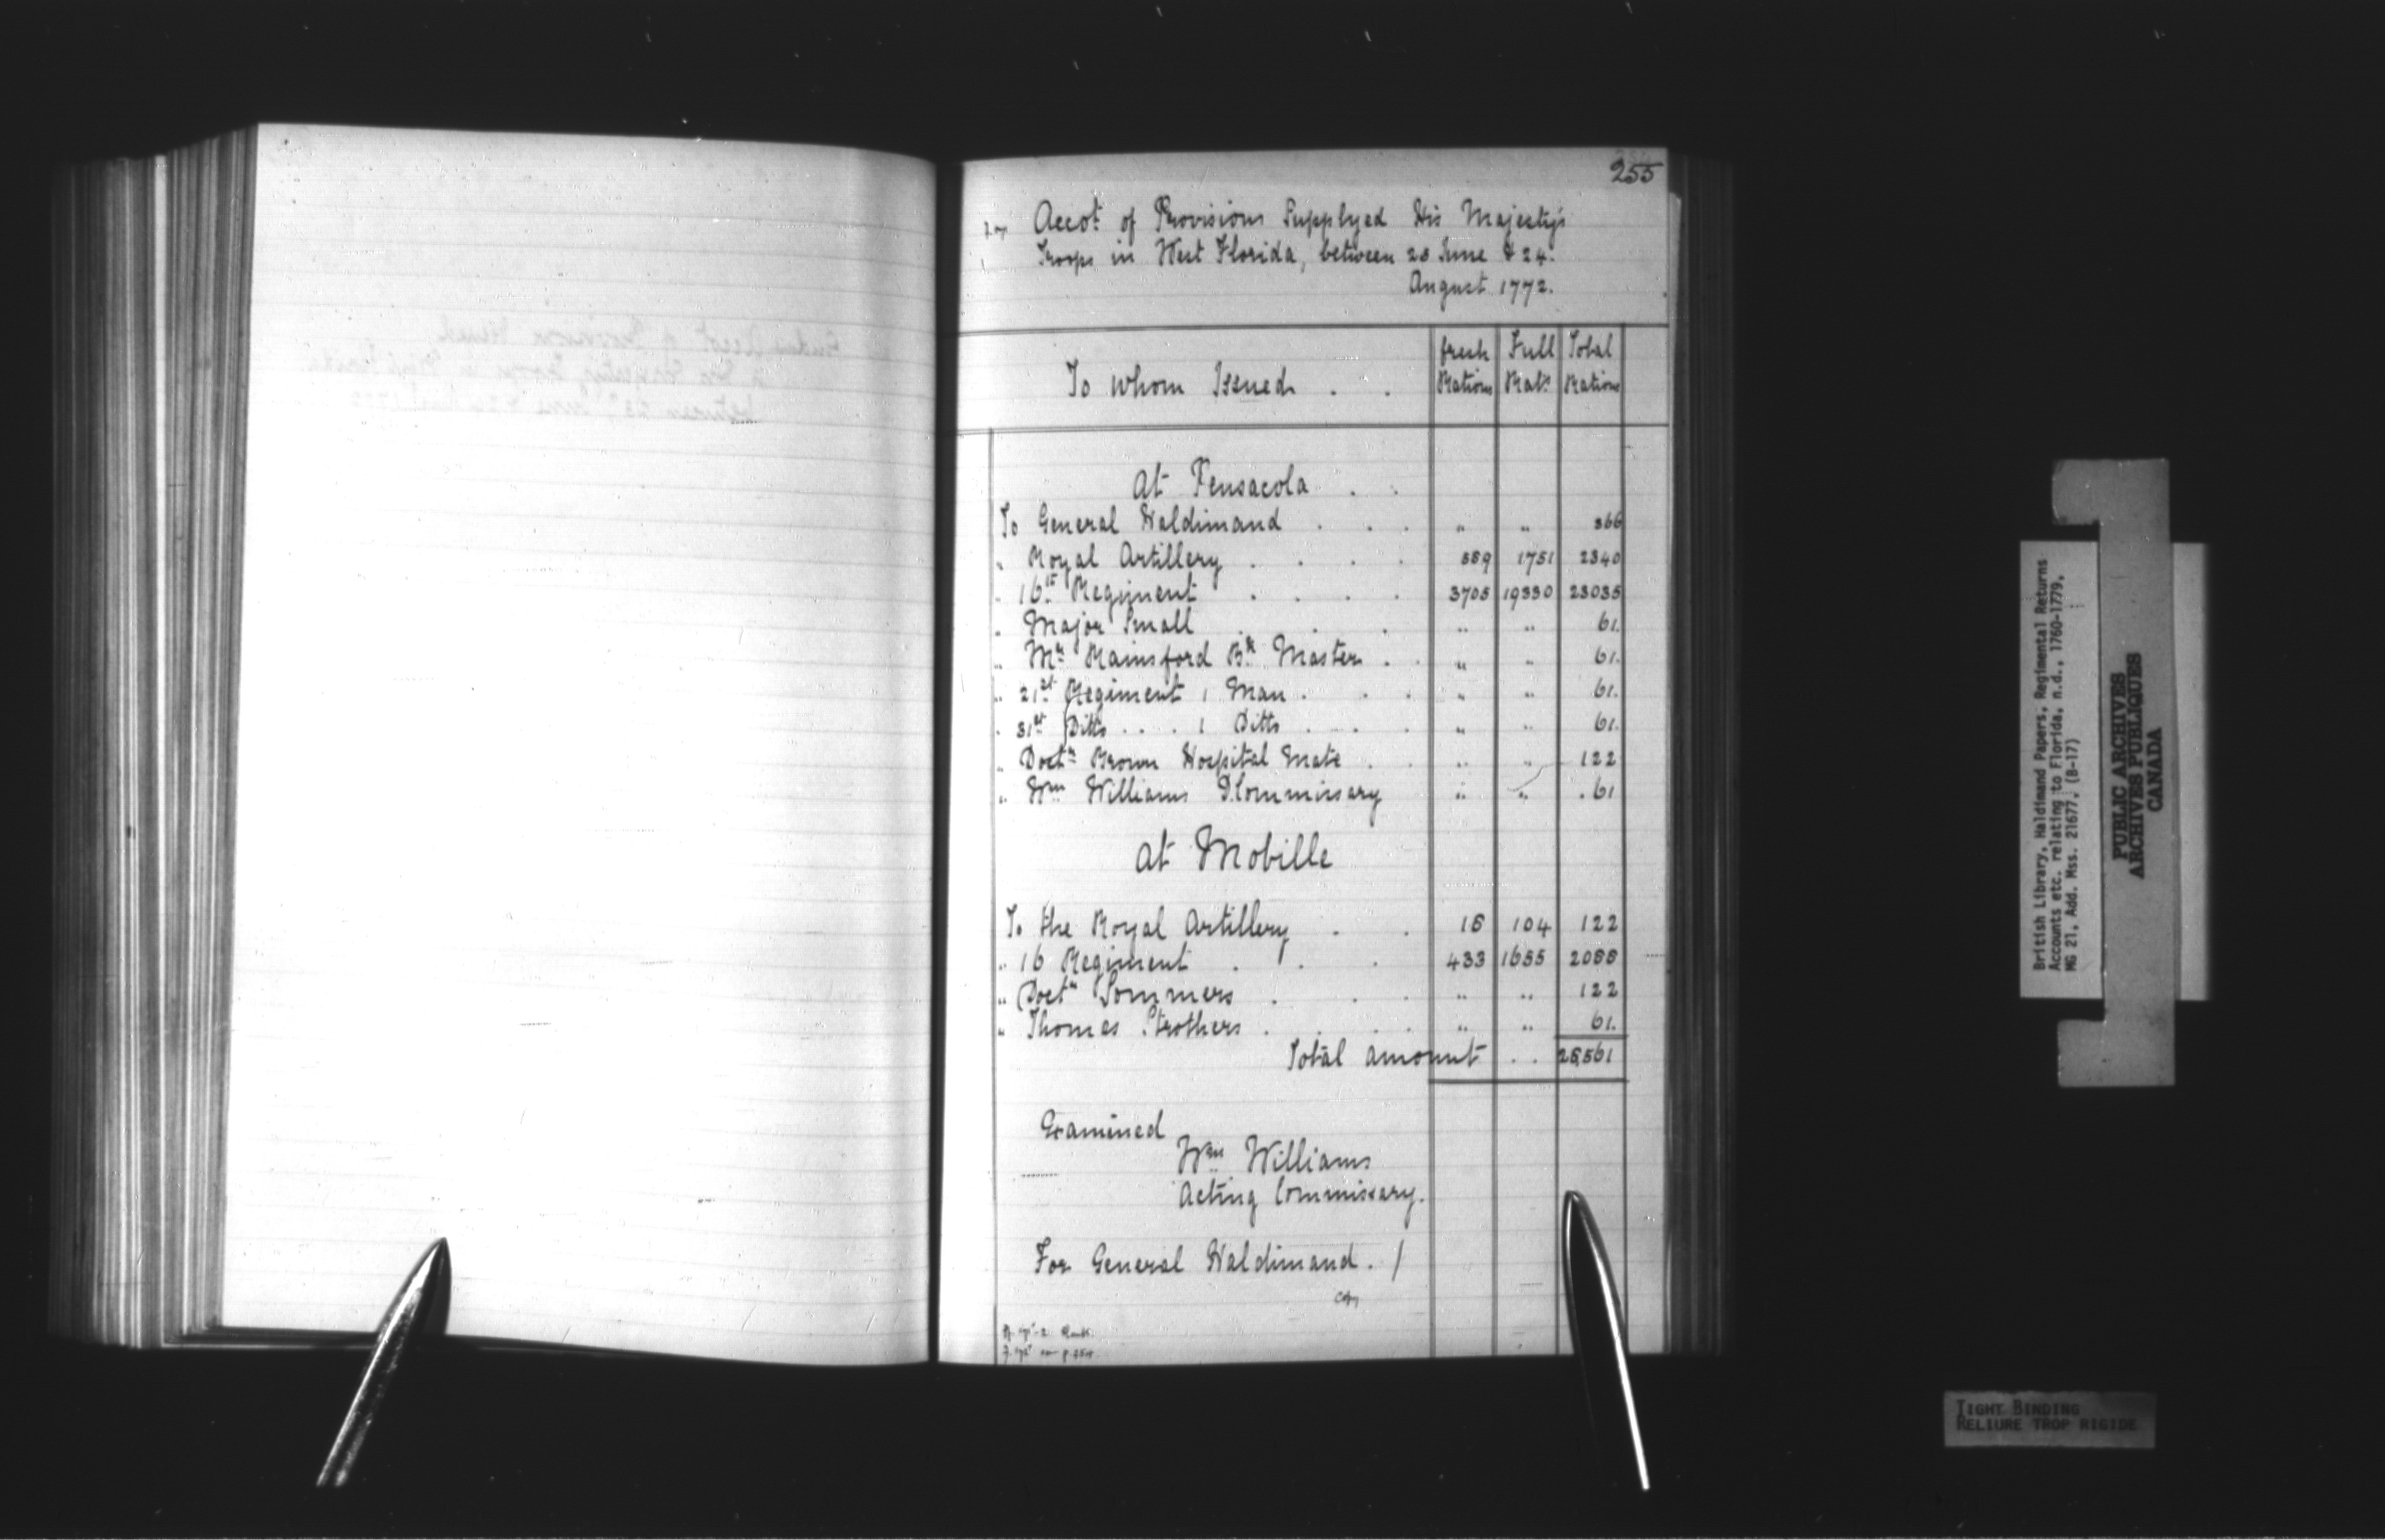 255
Accot. of Provisions Supplyed His Majesty's
Troops in West Florida, between 25 June & 24.
August 1772.
To whom Issued . . fresh Rations Full Rats. Total Rations
At Pensacola . .
To General Haldimand . . . " " 366
" Royal Artillery . . . . 589 1751 2340
" 16th Regiment . . . . 3705 19330 23035
" Major Small . . . " " 61.
" Mr Rainsford Bk Master . . " " 61.
" 21st Regiment 1 Man . . . " " 61.
" 31st Ditto . . . . 1 Ditto . . . " " 61.
" Doctr Brown Hospital Mate . . " " 122
" Wm Williams D.Commissary " " . 61
At Mobille
To the Royal Artillery . . 18 104 122
" 16 Regiment . . . 433 1655 2088
" Doctr Sommers . . . " " 122
" Thomas Strothers . . . . " " 61.
Total amount . . 28,561
Examined
Wm Williams
Acting Commissary.
For General Haldimand. /
British Library, Haldimand Papers, Regimental Returns
Accounts etc. relating to Florida, n.d., 1760-1779,
MG 21, Add. Mss. 21677, (B-17)
PUBLIC ARCHIVES
ARCHIVES PUBLIQUES
CANADA
TIGHT BINDING
RELIURE TROP RIGIDE